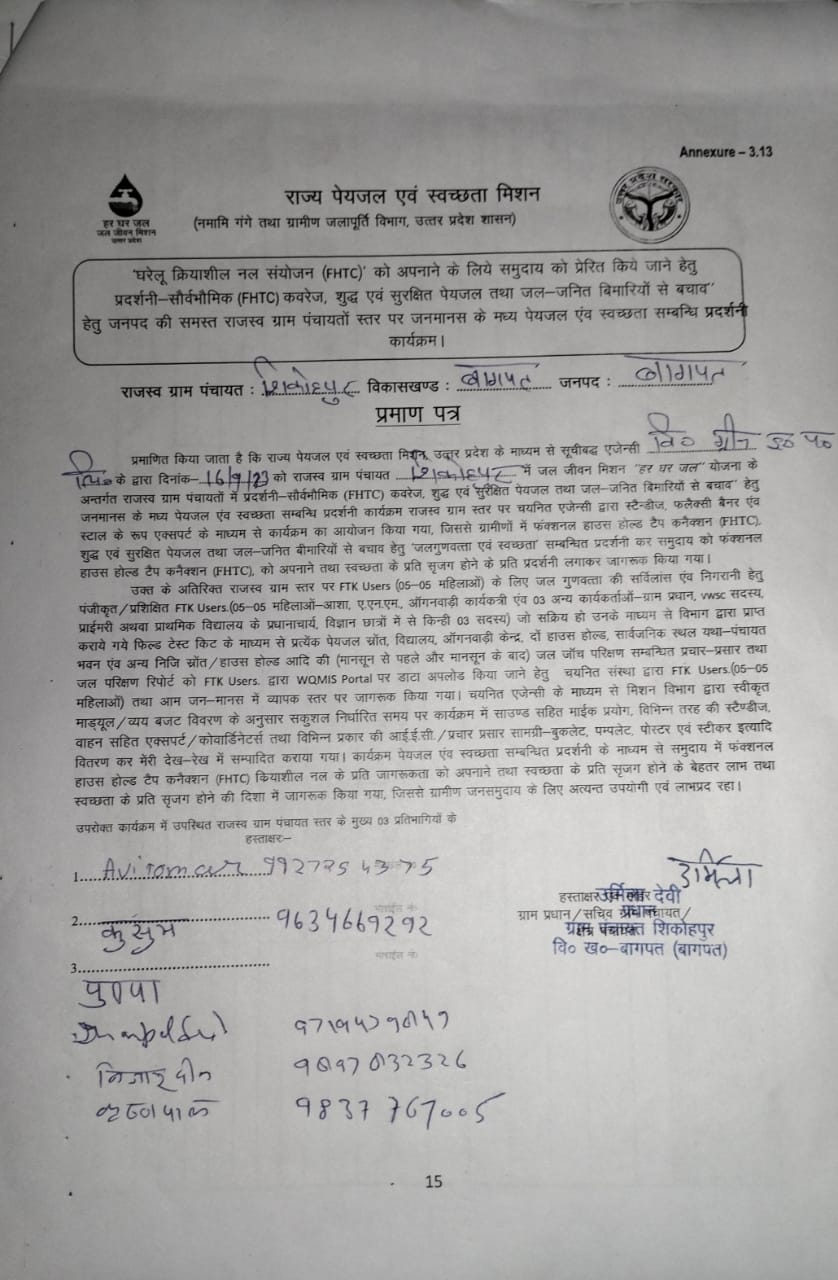 Annexure – 3.13
हर घर जल
जल जीवन मिशन
उत्तर प्रदेश
उत्तर प्रदेश सरकार
राज्य पेयजल एवं स्वच्छता मिशन
(नमामि गंगे तथा ग्रामीण जलापूर्ति विभाग, उत्तर प्रदेश शासन)
'घरेलू क्रियाशील नल संयोजन (FHTC)' को अपनाने के लिये समुदाय को प्रेरित किये जाने हेतु
प्रदर्शनी–सौर्वभौमिक (FHTC) कवरेज, शुद्ध एवं सुरक्षित पेयजल तथा जल–जनित बिमारियों से बचाव"
हेतु जनपद की समस्त राजस्व ग्राम पंचायतों स्तर पर जनमानस के मध्य पेयजल एंव स्वच्छता सम्बन्धि प्रदर्शनी
कार्यक्रम।
राजस्व ग्राम पंचायत : शिकोहपुर विकासखण्ड : बागपत जनपद : बागपत
प्रमाण पत्र
प्रमाणित किया जाता है कि राज्य पेयजल एवं स्वच्छता मिशन, उत्तर प्रदेश के माध्यम से सूचीबद्ध एजेन्सी वि० ग्रीन उ० प०
लि० के द्वारा दिनांक– 16/9/23 को राजस्व ग्राम पंचायत शिकोहपुर में जल जीवन मिशन "हर घर जल" योजना के
अन्तर्गत राजस्व ग्राम पंचायतों में प्रदर्शनी–सौर्वभौमिक (FHTC) कवरेज, शुद्ध एवं सुरक्षित पेयजल तथा जल–जनित बिमारियों से बचाव" हेतु
जनमानस के मध्य पेयजल एंव स्वच्छता सम्बन्धि प्रदर्शनी कार्यक्रम राजस्व ग्राम स्तर पर चयनित एजेन्सी द्वारा स्टैन्डीज, फलैक्सी बैनर एंव
स्टाल के रूप एक्सपर्ट के माध्यम से कार्यक्रम का आयोजन किया गया, जिससे ग्रामीणों में फंक्शनल हाउस होल्ड टैप कनैक्शन (FHTC),
शुद्ध एवं सुरक्षित पेयजल तथा जल–जनित बीमारियों से बचाव हेतु 'जलगुणवत्ता एवं स्वच्छता' सम्बन्धित प्रदर्शनी कर समुदाय को फंक्शनल
हाउस होल्ड टैप कनैक्शन (FHTC), को अपनाने तथा स्वच्छता के प्रति सृजग होने के प्रति प्रदर्शनी लगाकर जागरूक किया गया।
उक्त के अतिरिक्त राजस्व ग्राम स्तर पर FTK Users (05–05 महिलाओं) के लिए जल गुणवत्ता की सर्विलांस एंव निगरानी हेतु
पंजीकृत/प्रशिक्षित FTK Users.(05–05 महिलाओं–आशा, ए.एन.एम., ऑंगनवाड़ी कार्यकत्री एंव 03 अन्य कार्यकर्ताओं–ग्राम प्रधान, vwsc सदस्य,
प्राईमरी अथवा प्राथमिक विद्यालय के प्रधानाचार्य, विज्ञान छात्रों में से किन्ही 03 सदस्य) जो सक्रिय हो उनके माध्यम से विभाग द्वारा प्राप्त
कराये गये फिल्ड टेस्ट किट के माध्यम से प्रत्येंक पेयजल स्रोंत, विद्यालय, ऑंगनवाड़ी केन्द्र, दों हाउस होल्ड, सार्वजनिक स्थल यथा–पंचायत
भवन एंव अन्य निजि स्रोंत/हाउस होल्ड आदि की (मानसून से पहले और मानसून के बाद) जल जाँच परिक्षण सम्बन्धित प्रचार–प्रसार तथा
जल परिक्षण रिपोर्ट को FTK Users. द्वारा WQMIS Portal पर डाटा अपलोड किया जाने हेतु चयनित संस्था द्वारा FTK Users.(05–05
महिलाओं) तथा आम जन–मानस में व्यापक स्तर पर जागरूक किया गया। चयनित एजेन्सी के माध्यम से मिशन विभाग द्वारा स्वीकृत
माड्यूल/व्यय बजट विवरण के अनुसार सकुशल निर्धारित समय पर कार्यक्रम में साउण्ड सहित माईक प्रयोग, विभिन्न तरह की स्टैण्डीज,
वाहन सहित एक्सपर्ट/कोवार्डिनेटर्स तथा विभिन्न प्रकार की आई.ई.सी./प्रचार प्रसार सामग्री–बुकलेट, पम्पलेट, पोस्टर एवं स्टीकर इत्यादि
वितरण कर मेरी देख–रेख में सम्पादित कराया गया। कार्यक्रम पेयजल एंव स्वच्छता सम्बन्धित प्रदर्शनी के माध्यम से समुदाय में फंक्शनल
हाउस होल्ड टैप कनैक्शन (FHTC) कियाशील नल के प्रति जागरूकता को अपनाने तथा स्वच्छता के प्रति सृजग होने के बेहतर लाभ तथा
स्वच्छता के प्रति सृजग होने की दिशा में जागरूक किया गया, जिससे ग्रामीण जनसमुदाय के लिए अत्यन्त उपयोगी एवं लाभप्रद रहा।
उपरोक्त कार्यक्रम में उपस्थित राजस्व ग्राम पंचायत स्तर के मुख्य 03 प्रतिभागियों के
हस्ताक्षरः–
1. Avi Tomar 9927254375
2. कुसुम 9634669292
मोबाईल नं०
3.
मोबाईल नं०
पुष्पा
9719479049
निजामुद्दीन 9897032326
कृष्णपाल 9837767005
उर्मिला
हस्ताक्षर
उर्मिला देवी
ग्राम प्रधान/सचिव ग्राम पंचायत/
प्रधान
ग्राम पंचायत शिकोहपुर
वि० ख०–बागपत (बागपत)
15